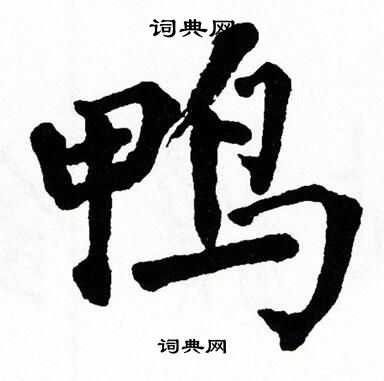 词典网
鸭
词典网